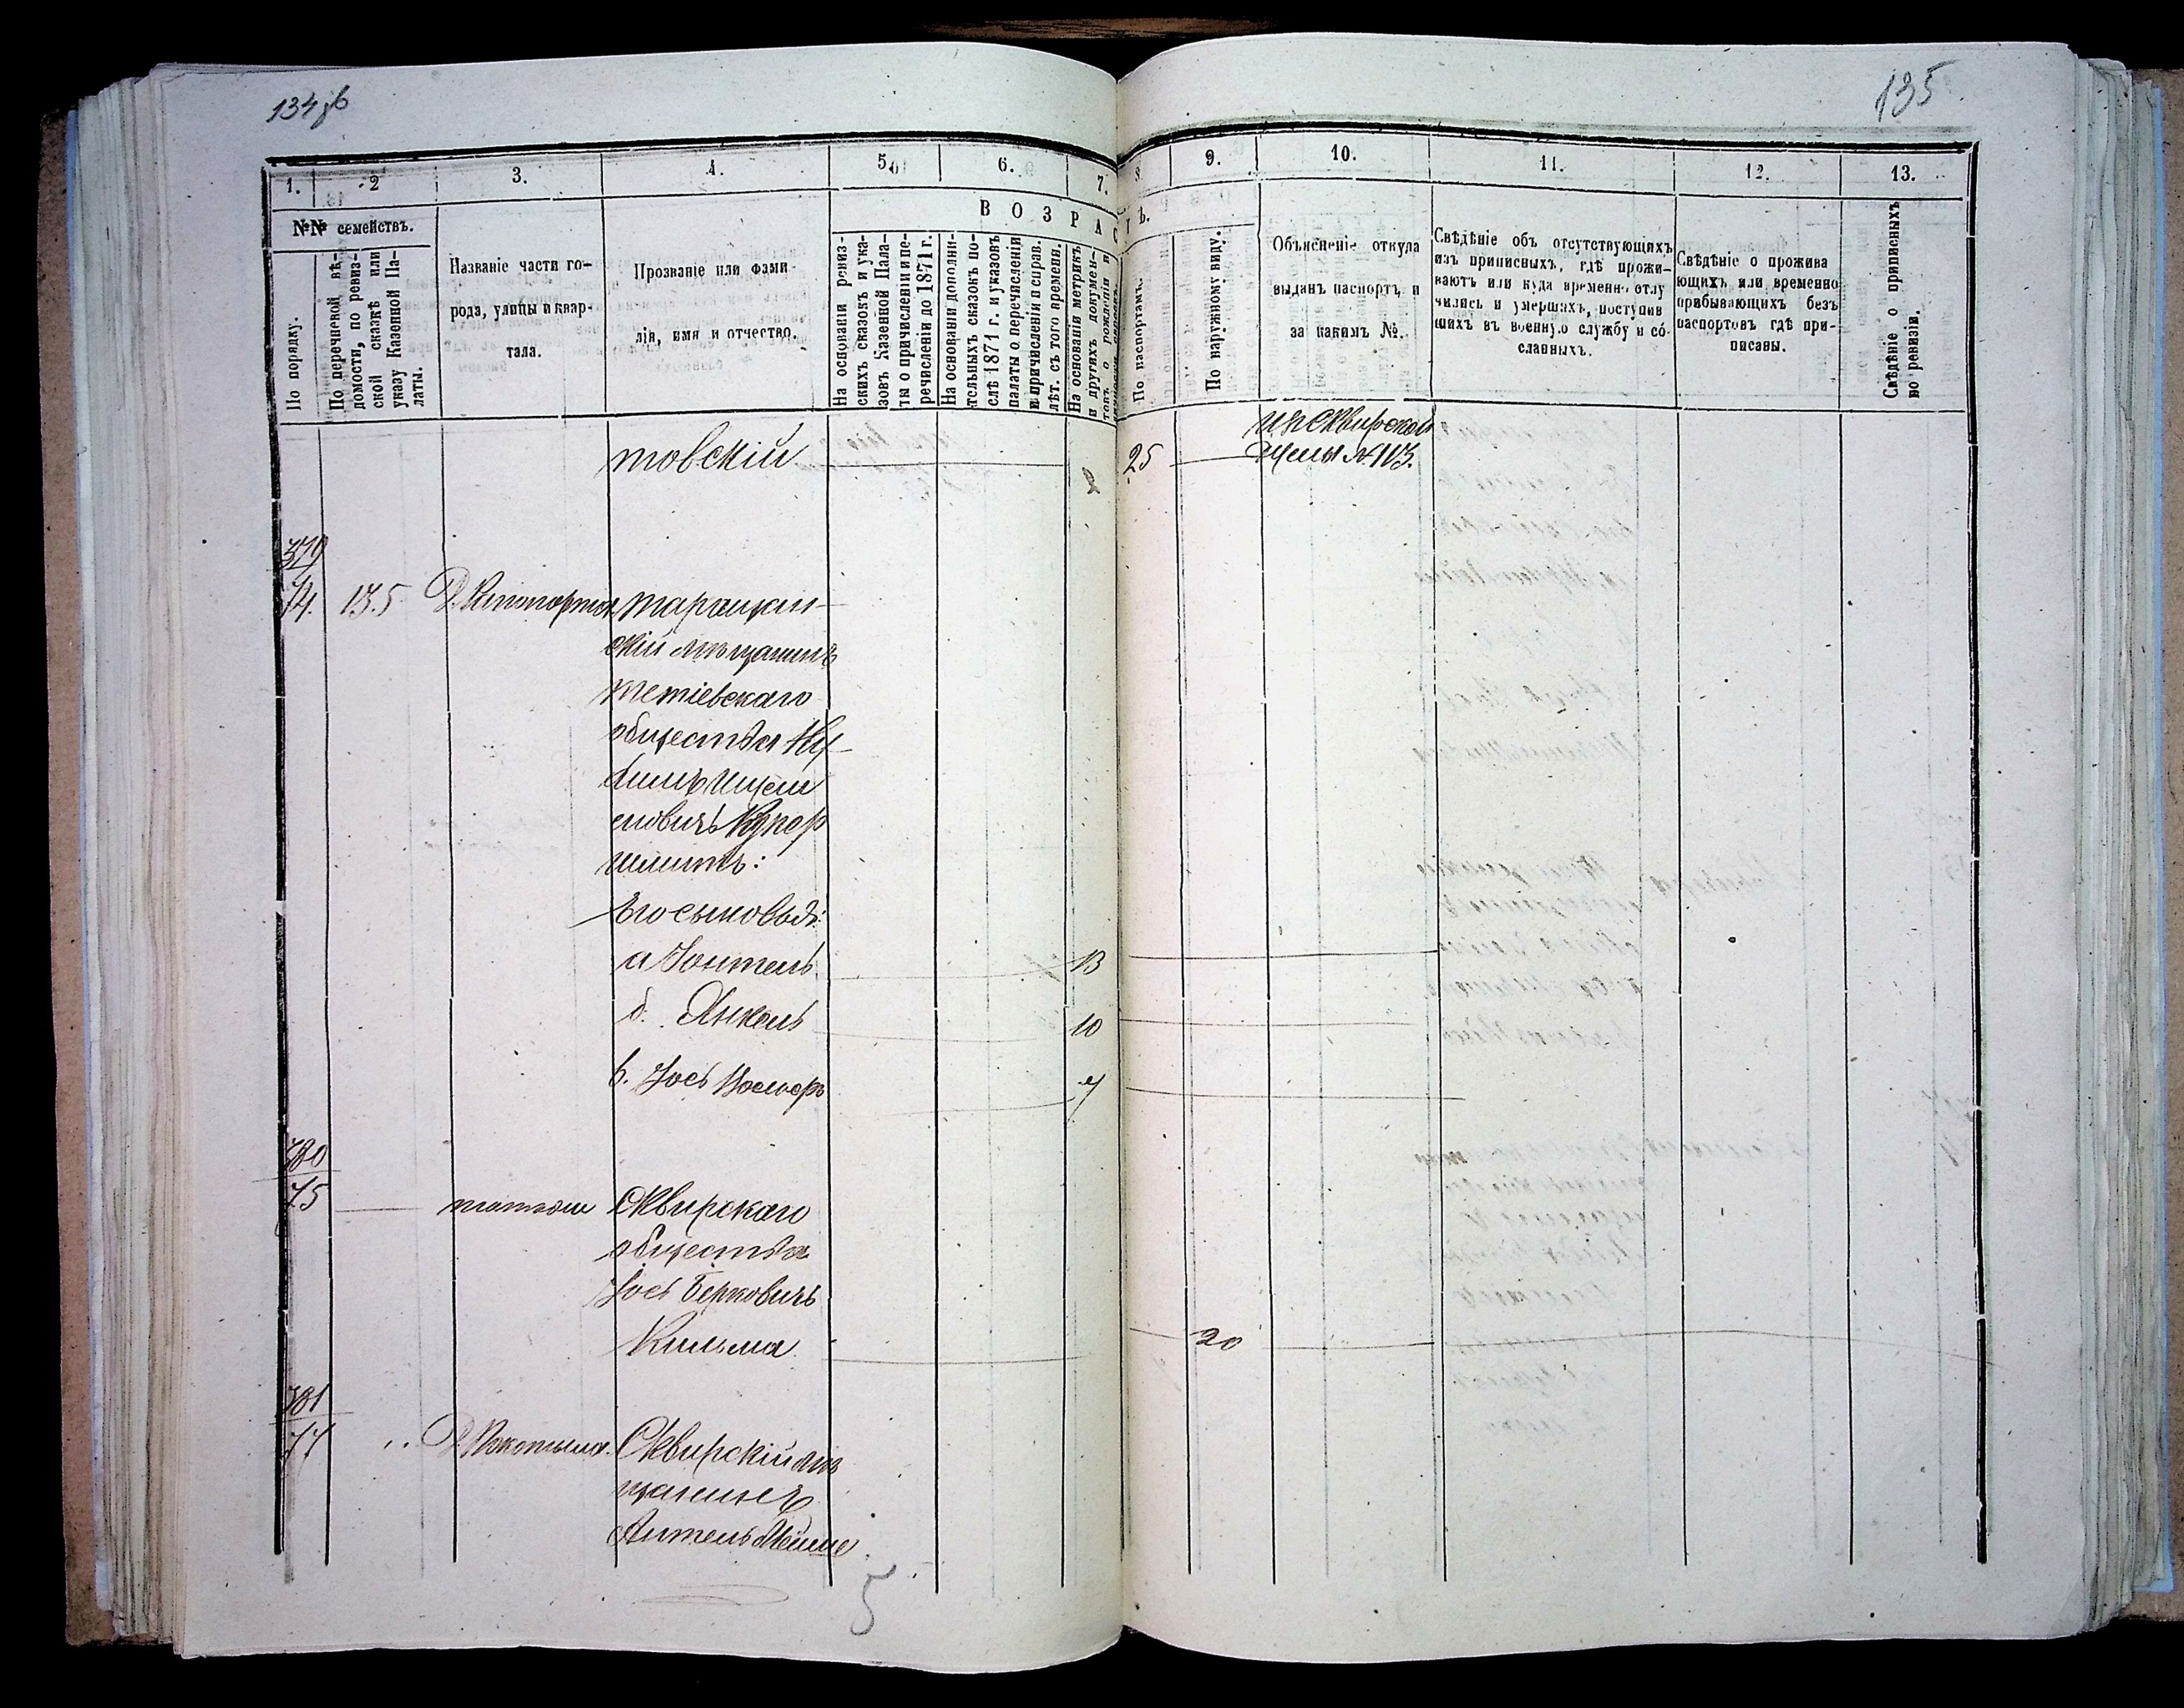 134 об
135
1.
2
3.
4.
5.
6.
7.
8.
9.
10.
11.
12.
13.
№№ семействъ.
По порядку.
По перечневой вѣ-
домости, по ревиз-
ской сказкѣ или
указу Казенной Па-
латы.
Названіе части го-
рода, улицы и квар-
тала.
Прозваніе или фами-
лія, имя и отчество.
ВОЗРАСТЪ.
На основаніи ревиз-
скихъ сказокъ и ука-
зовъ Казенной Пала-
ты о причисленіи и пе-
речисленіи до 1871 г.
На основаніи дополни-
тельныхъ сказокъ по-
слѣ 1871 г. и указовъ
палаты о перечисленіи
и причисленіи и справ.
лѣт. съ того времени.
На основаніи метрикъ
и другихъ докумен-
товъ о рожденіи и
По паспортамъ.
По наружному виду.
Объясненіе откуда
выданъ паспортъ и
за какимъ №.
Свѣдѣніе объ отсутствующихъ
изъ приписныхъ, гдѣ прожи-
ваютъ или куда временно отлу
чились и умершихъ, поступив
шихъ въ военную службу и со-
сланныхъ.
Свѣдѣніе о прожива
ющихъ или временно
прибывающихъ безъ
паспортовъ гдѣ при-
писаны.
Свѣдѣніе о приписныхъ
по ревизіи.
товскій 25 изъ Сквирской
№ 113.
379
74. 135 Д. Рапопорта Таращан-
скій мѣщанинъ
Тетіевскаго
общества
Его сыновья:
а 13
б. Янкель 10
в. Іось 7
380
75 тотъ же Сквирскаго
общества
Іось Берковичъ
20
381
77 Сквирскій мѣ
щанинъ
5